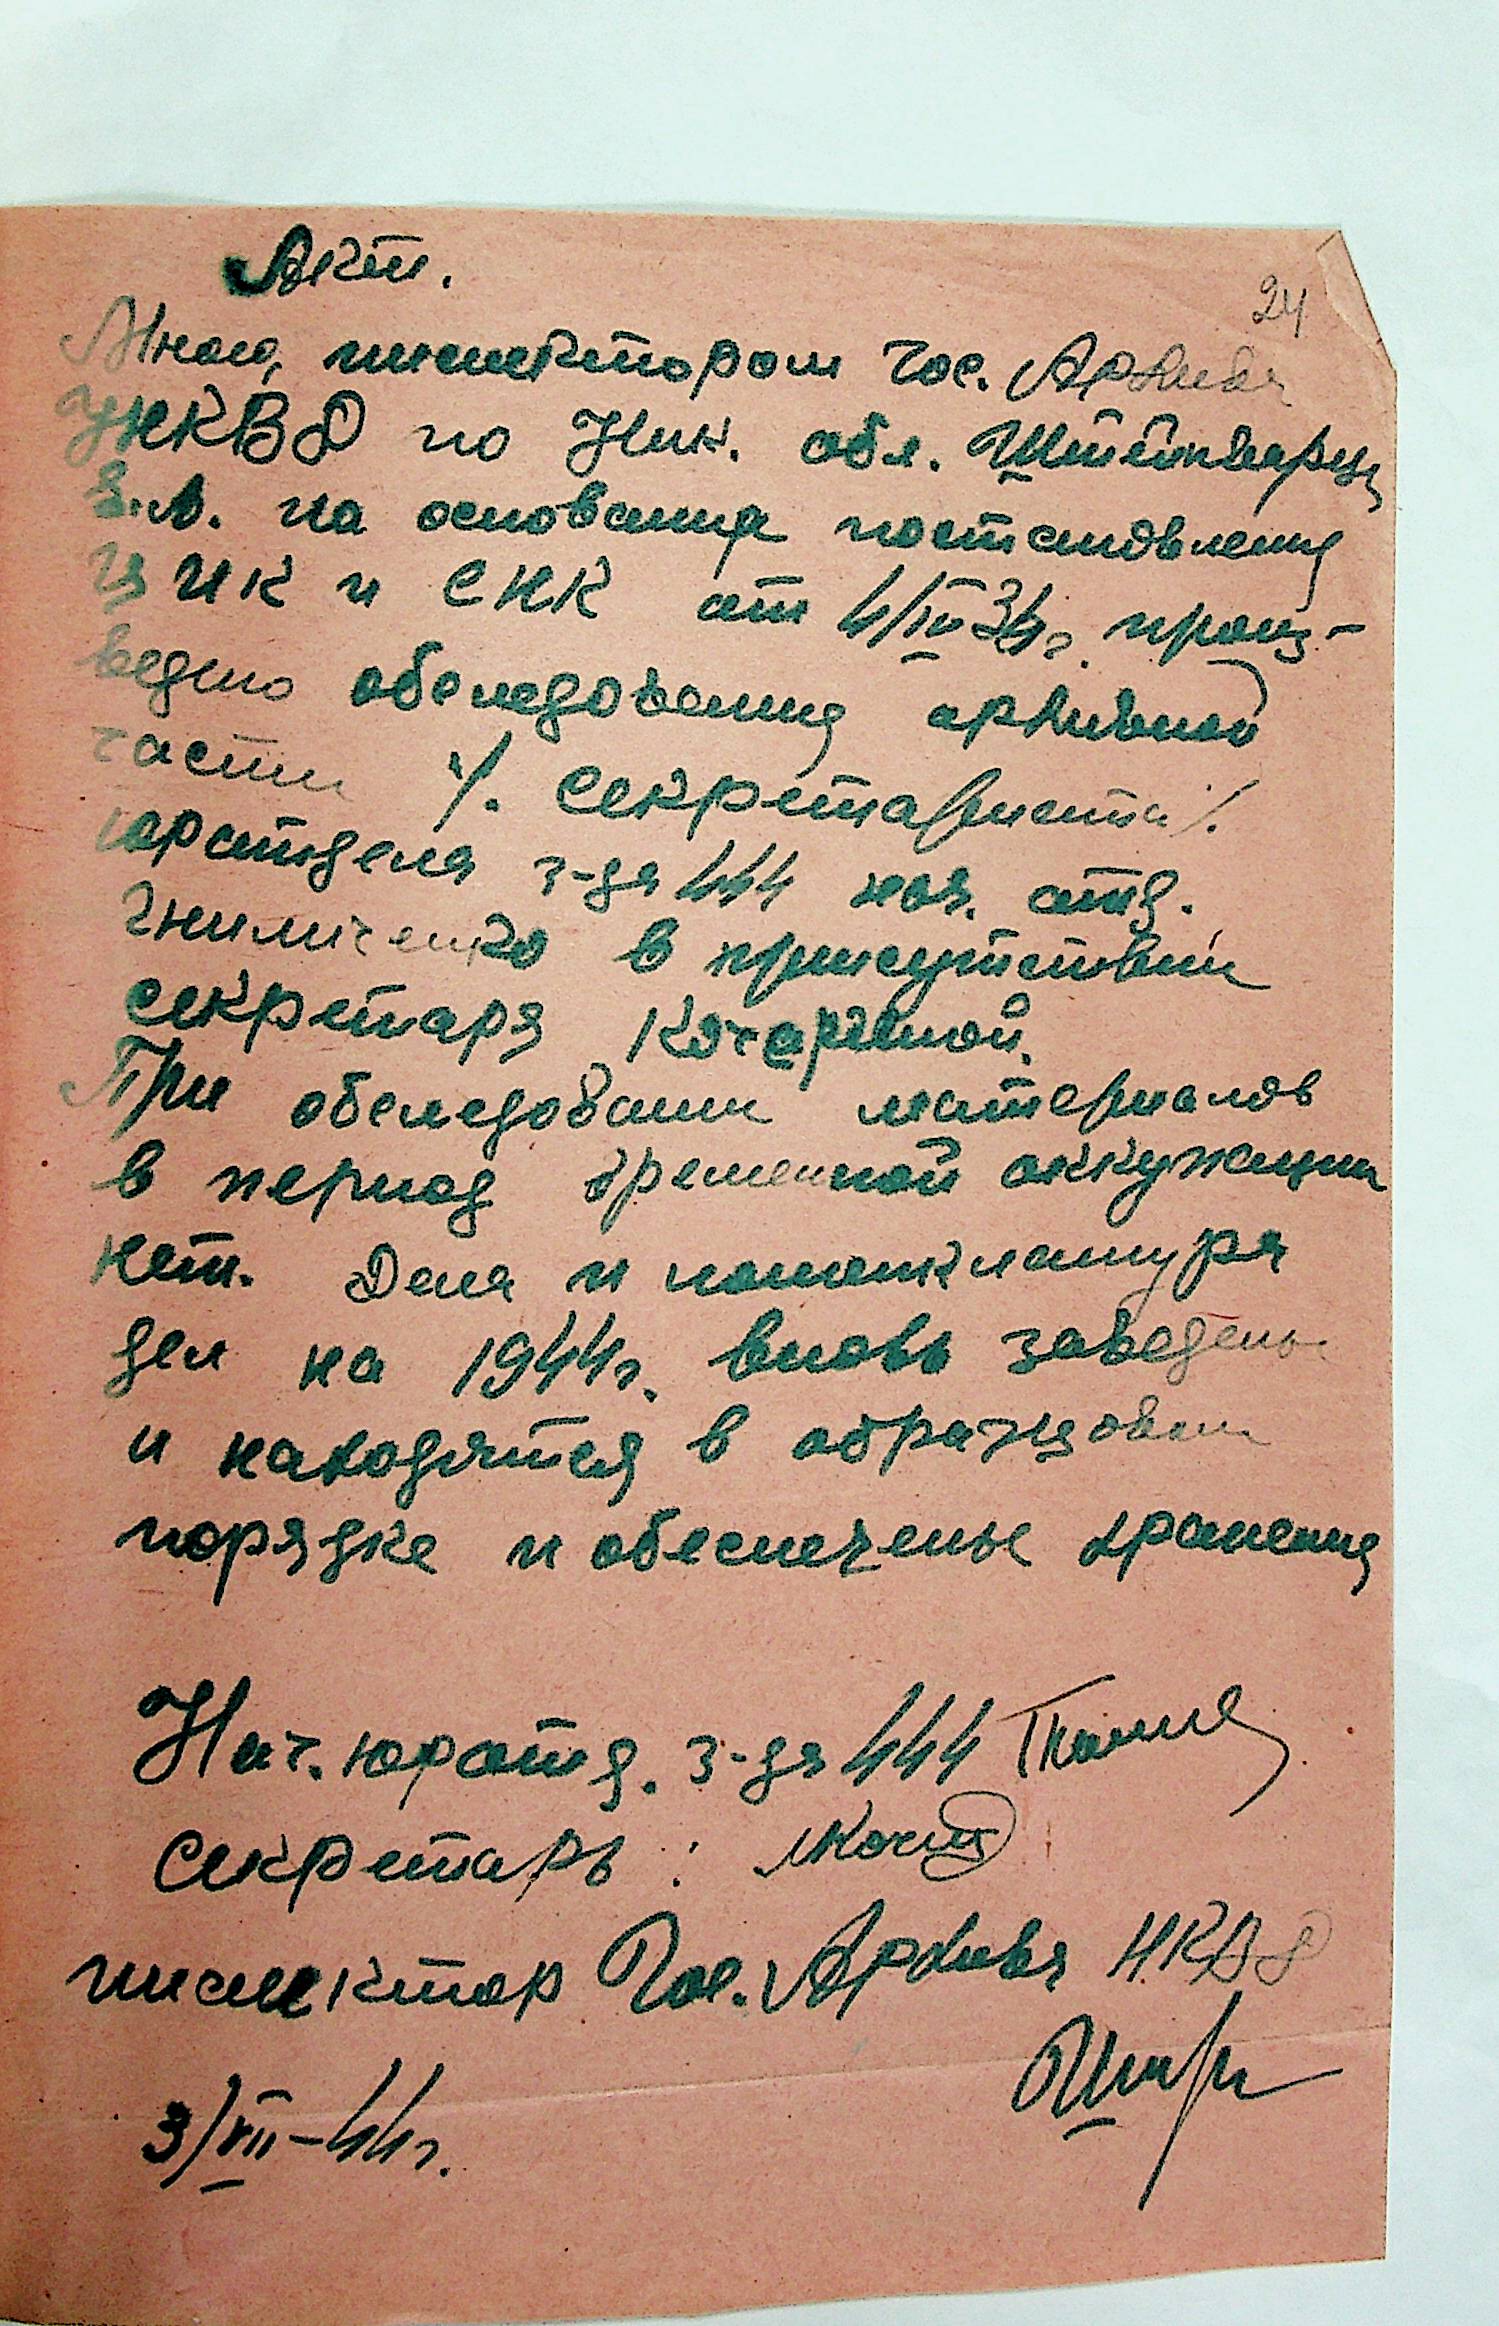 Акт.
24
Мною, инспектором Гос. Архива
УНКВД по Ник. обл. Штейнварц
Е.А. на основания постановления
ЦИК и СНК от 4/IV 34г. произ-
ведено обследования архивной
части /. секретариата /.
юротдела з-да 444 нач. отд.
в присутствии
секретаря
При обследовании материалов
в период временной аккупации
нет. Дела и номенклатура
дел на 1944г. вновь заведены
и находятся в образцовом
порядке и обеспеченые хранения
Нач. юротд. з-да 444
Секретарь:
инспектор Гос. Архива НКВД
3/VII-44г.